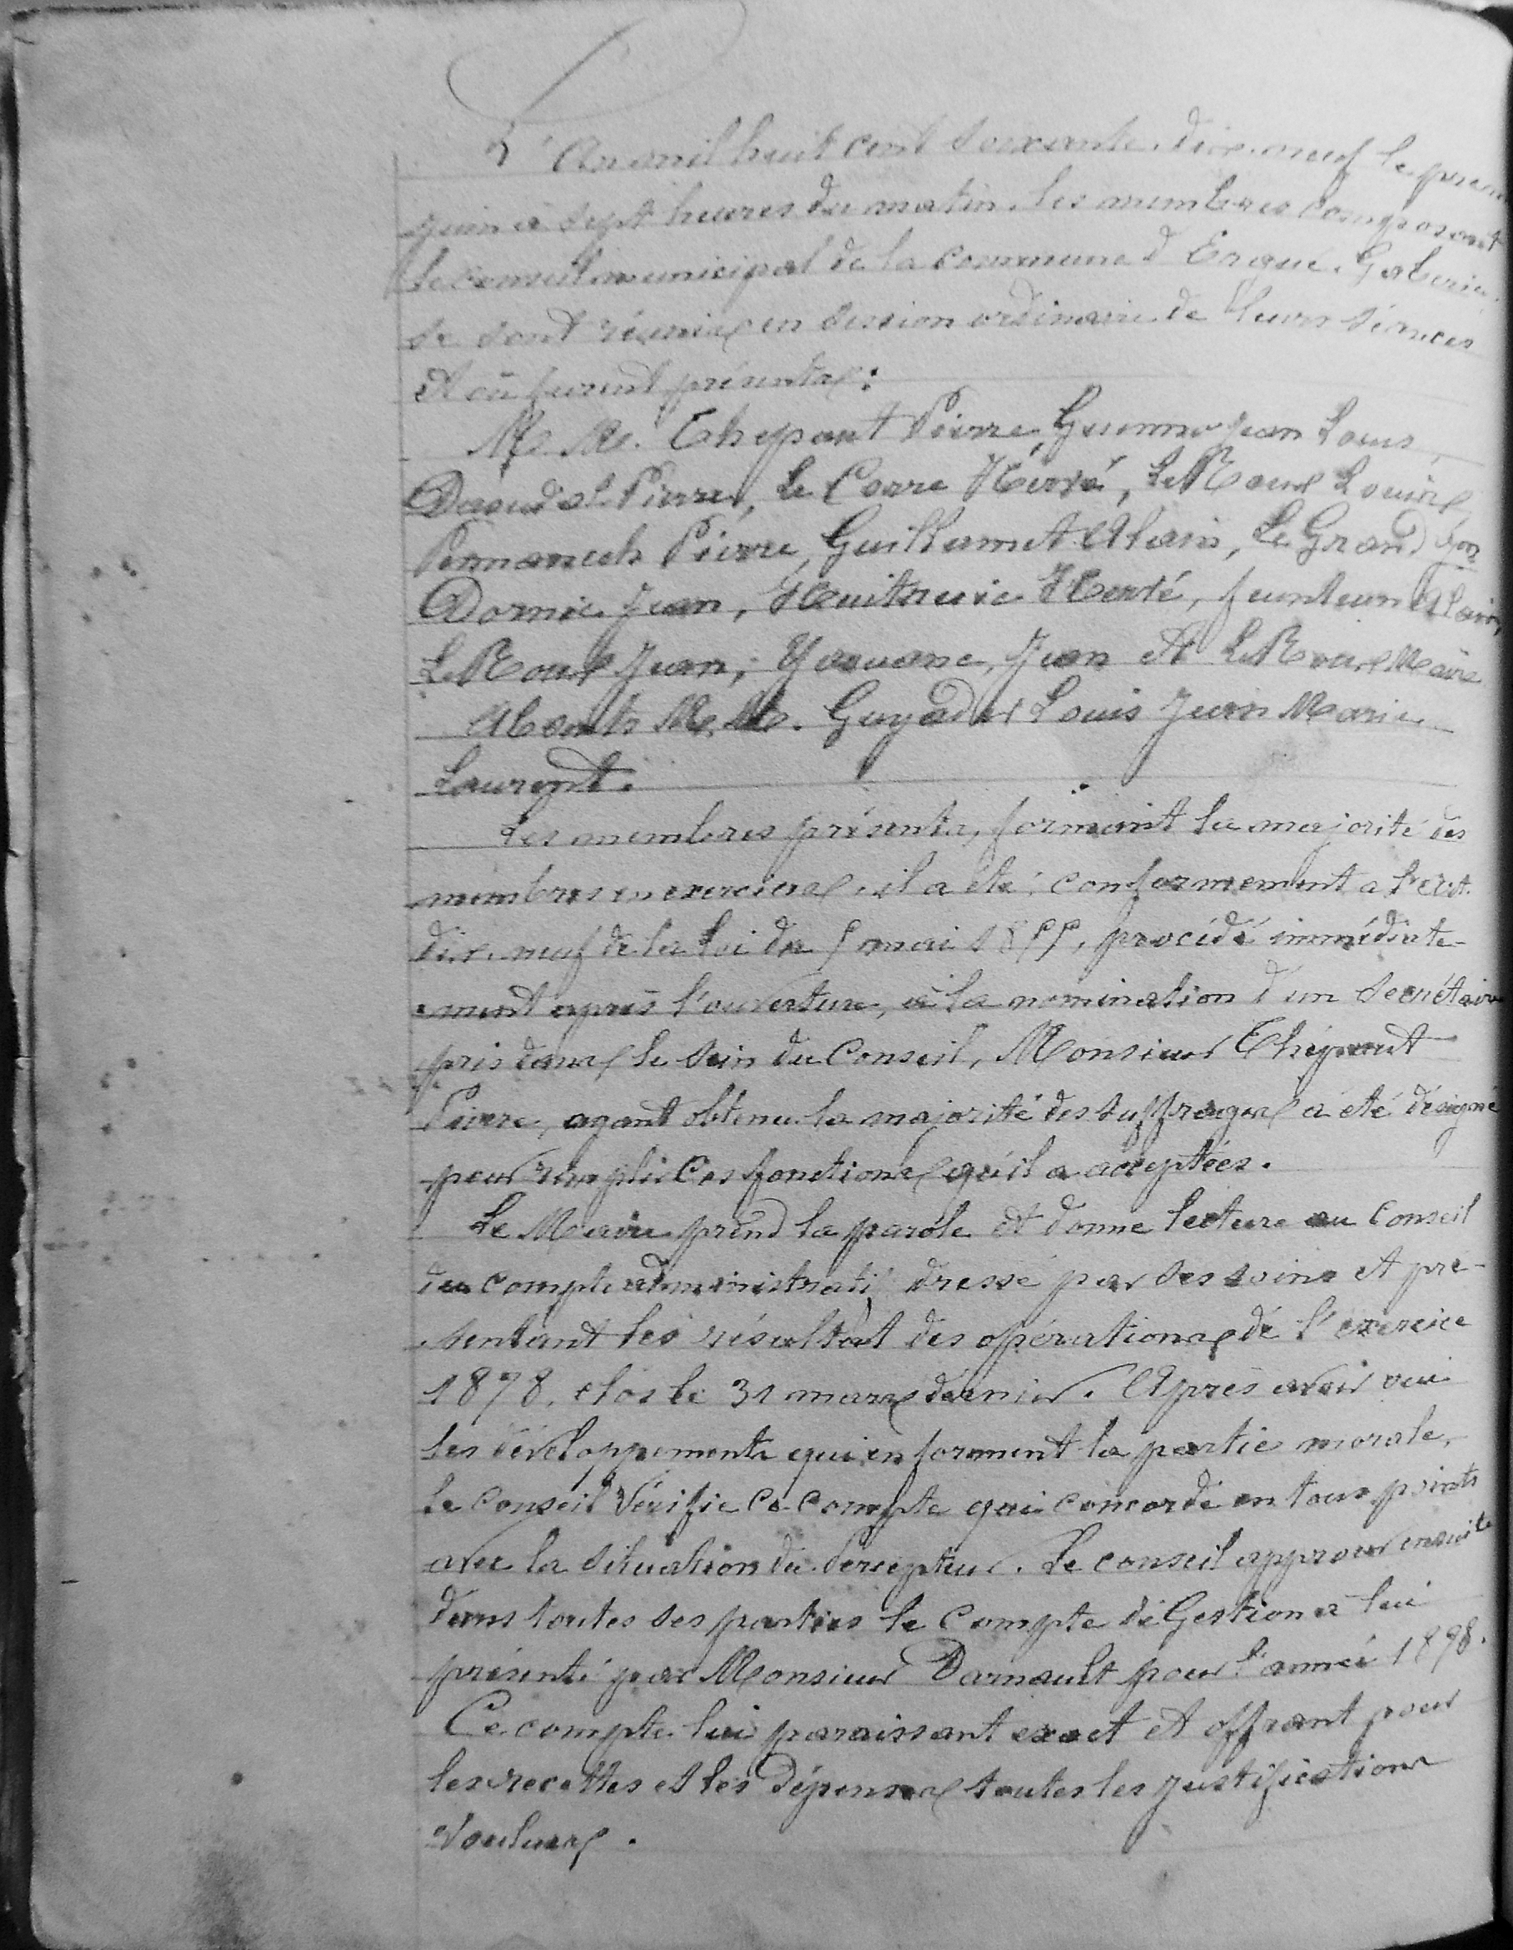 L'An mil huit cent soixante-dix-neuf le prem
juin à sept heures du matin, les membres composant
le conseil municipal de la commune d'Ergué-Gabéric
se sont réunis en session ordinaire de leurs séances
Et où furent présents :
M. M. Thepaut Pierre, Guennou Jean Louis,
Daoudal Pierre, Le Corre Hervé, Le Roux Louis
Pennanech Pierre, Guillamet Alain, Le Grand
Dornic Jean, Huitneuic Hervé, feunteun Alain,
Le Roux Jean, Yaouanc Jean et Le Roux Maire
Absents M. M. Guyader Louis Jean Marie
Laurent.
Les membres présents, formant la majorité des
membres en exercices, il a été, conformement a l'art.
dix-neuf de la Loi du 5 mai 1855, procédé immédiate-
ment après l'ouverture, à la nomination d'un Secrétaire
pris dans le sein du Conseil, Monsieur Thépaut
Pierre, ayant obtenu la majorité des suffrages a été désigné
pour remplir ces fonctions qu'il a acceptées.
Le Maire prend la parole et donne lecture au Conseil
du compte administratif dressé par ses soins et pré-
sentant les résultat des opérations de l'exercice
1878, clos le 31 mars dernier. Après avoir oui
les développements qui en forment la partie morale,
le Conseil vérifie ce compte qui concorde en tous points
avec la situation du percepteur. Le conseil approuve ensuite
dans toutes ses parties le Compte de Gestion à lui
présenté par Monsieur Darnault pour l'année 1878.
Ce compte lui paraissant exact et offrant pour
les recettes et les dépenses toutes les justifications
voulues.